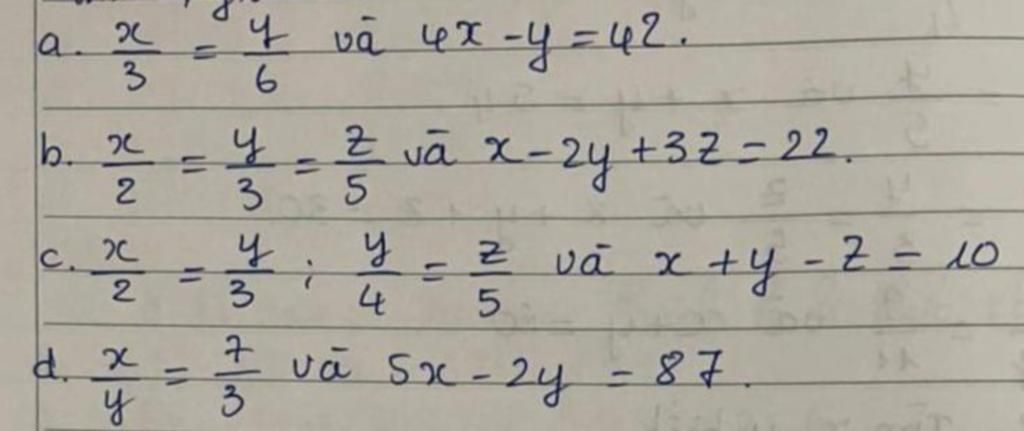 a. x/3 = y/6 và 4x - y = 42.
b. x/2 = y/3 = z/5 và x - 2y + 3z = 22.
c. x/2 = y/3 ; y/4 = z/5 và x + y - z = 10
d. x/y = 7/3 và 5x - 2y = 87.